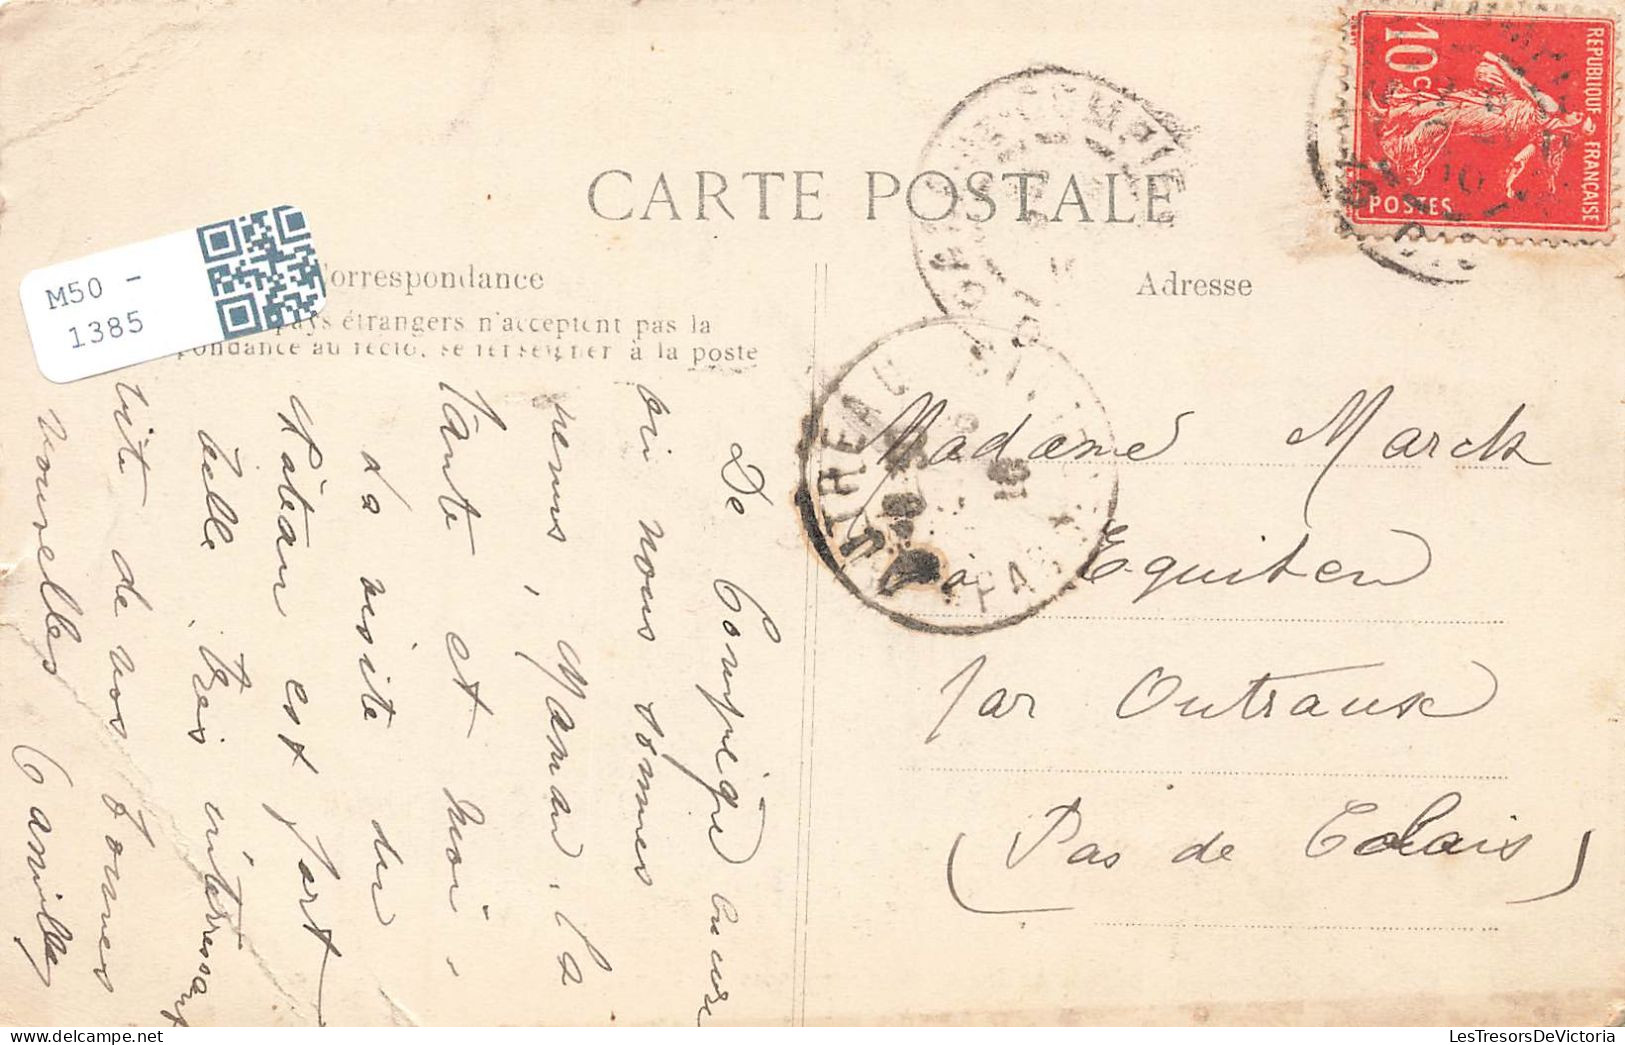 CARTE POSTALE
M50 -
1385
orrespondance
pays étrangers n'acceptent pas la
pondance au recto, se renseigner à la poste
Adresse
REPUBLIQUE FRANÇAISE
10 c
POSTES
De Compiègne
où nous sommes
venus, Maman, la
Tante et moi,
La visite du
Château est fort
belle, très intéressant
vite de vos bonnes
nouvelles Camille
Madame Marck
à Equihen
par Outreau
(Pas de Calais)